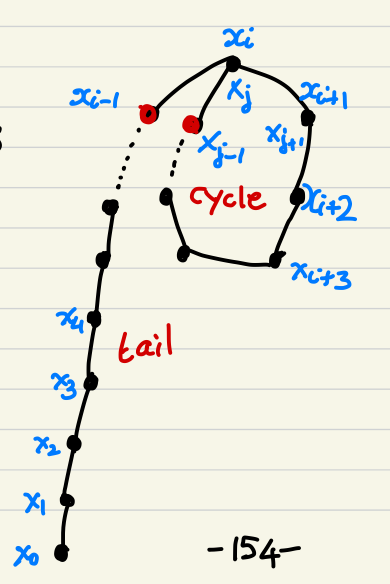 xi
xi-1
xj
xi+1
xj-1
xj+1
cycle
xi+2
xi+3
x4
tail
x3
x2
x1
x0
-154-